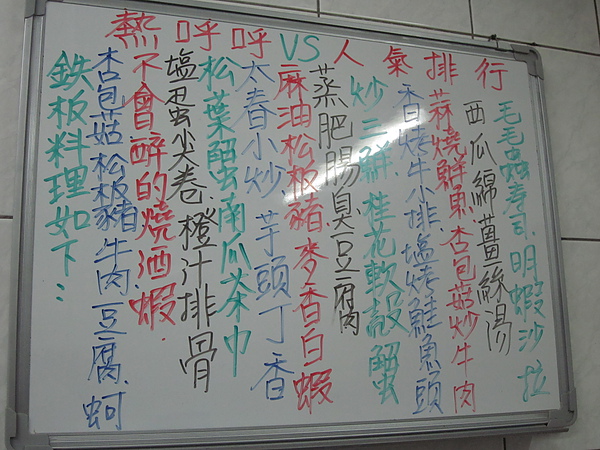 熱呼呼VS人氣排行
鉄板料理如下:
杏包菇.松板豬.牛肉.豆腐.蚵
不會醉的燒酒蝦.
塩蛋尖卷.橙汁排骨
松葉蟹南瓜茶巾
太春小炒.芋頭丁香
麻油松板豬.麥香白蝦
蒸肥腸臭豆腐
炒三鮮.桂花軟殼蟹
香烤牛小排.塩烤鮭魚頭
蒜燒鮮魚.杏包菇炒牛肉
西瓜綿薑絲湯
毛毛蟲壽司.明蝦沙拉